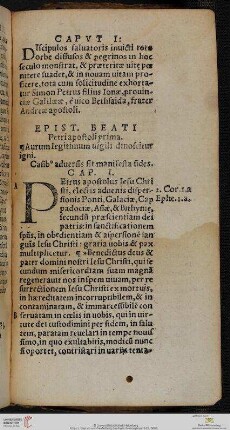 CAPVT I:
Discipulos saluatoris inuicti toto
Orbe diffusos & pegrinos in hoc
seculo monstrat, & præteritæ uitę pœ
nitere suadet, & in nouam uitam pro
ficere, tota cum solicitudine exhorta-
tur Simon Petrus filius Ionæ, prouin
ciæ Galileæ, è uico Bethsaida, frater
Andreæ apostoli.
EPIST. BEATI
Petri apostoli prima.
¶ Aurum legitimum uigili dinoscitur
igni.
Casib⁹ aduersis sit manifesta fides.
CAP. I.
Petrus apostolus Iesu Chri
sti, electis aduenis disper-
sionis Ponti, Galaciæ, Cap
padociæ, Asiæ, & Bithyniæ,
secundũ præscientiam dei
patris: in sanctificationem
spũs, in obedientiam & aspersionē san
guĩs Iesu Christi: gratia uobis & pax
multiplicetur. ¶ a Benedictus deus &
pater domini nostri Iesu Christi, qui se
cundum misericordiam suam magnã
regenerauit nos in spem uiuam, per re
surrectionem Iesu Christi ex mortuis,
in hæreditatem incorruptibilem, & in
contaminatam, & immarcessibilē con
seruatam in cœlis in uobis, qui in uir-
tute dei custodimini per fidem, in salu
tem, paratam reuelari in tempe nouis
simo, in quo exultabitis, modicũ nunc
si oportet, contristari in uarijs tenta-
2. Cor. 1. a
Ephe. 1. a.